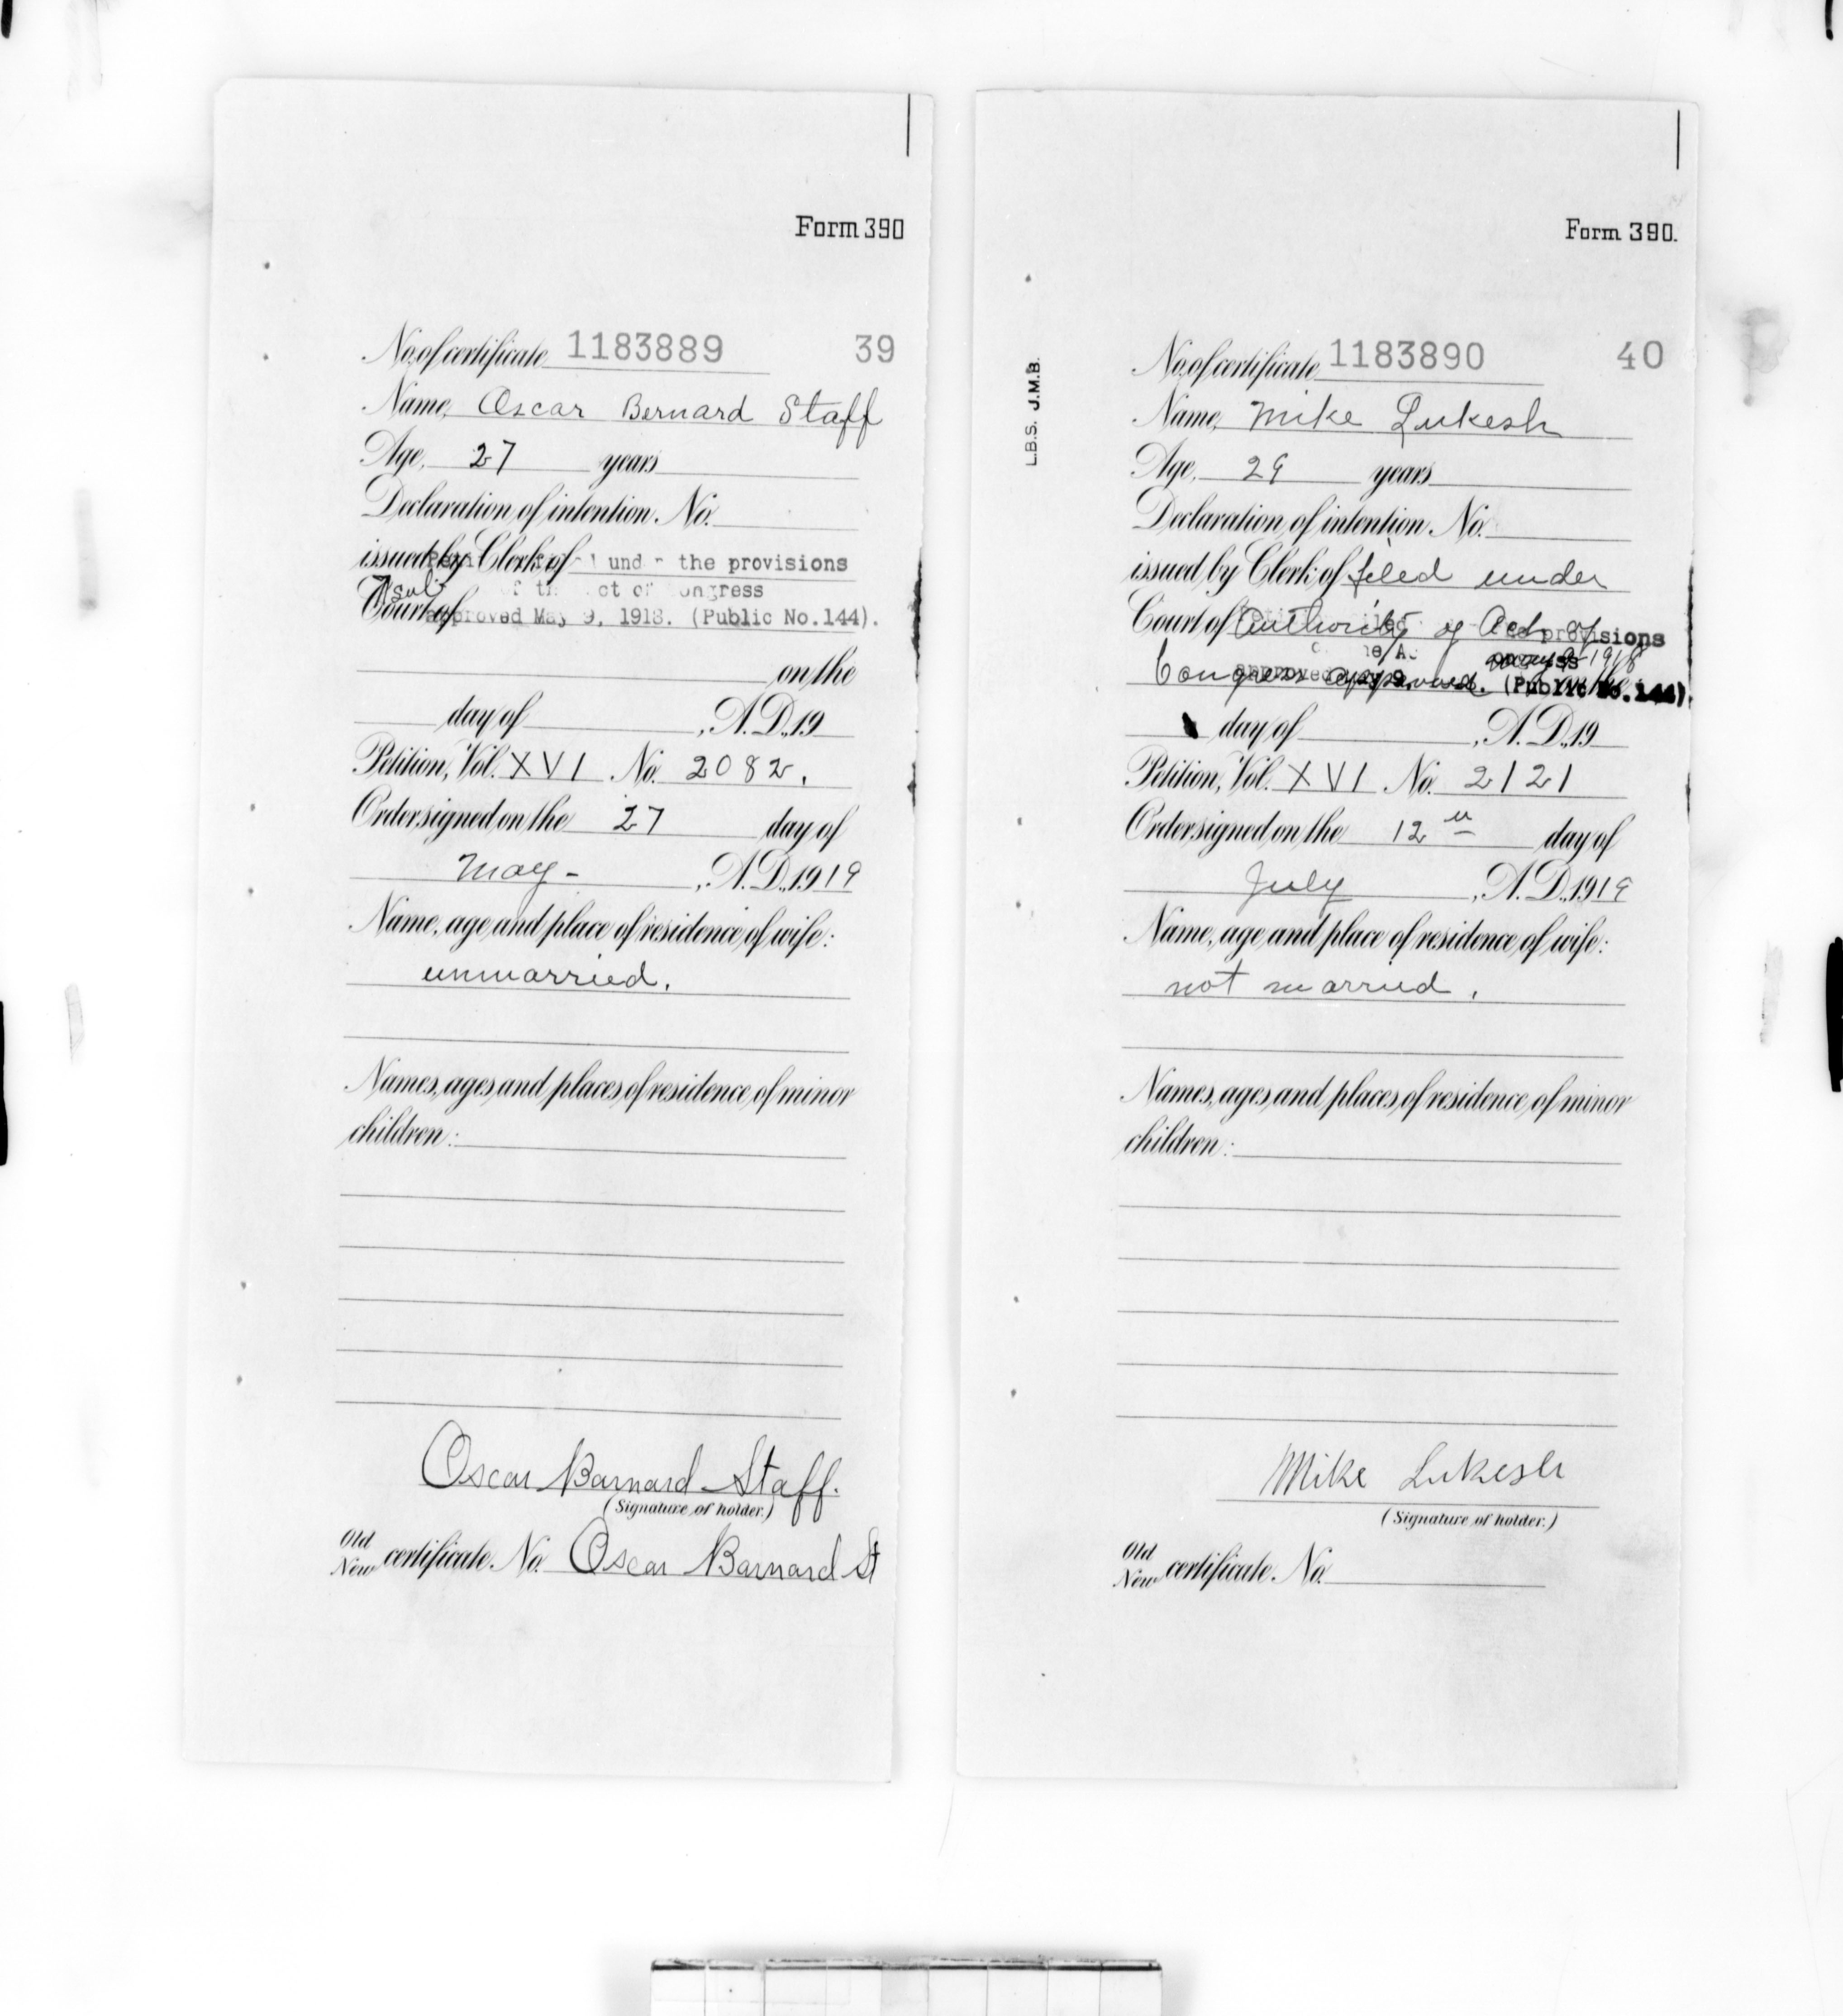 Form 390
No. of certificate 1183889 39
Name, Oscar Bernard Staff
Age, 27 years
Declaration of intention No.
issued by Clerk of under the provisions
of the Act of Congress
Court of approved May 9, 1918. (Public No.144).
on the
day of , A.D. 19
Petition, Vol. XVI No. 2082.
Order signed on the 27 day of
May - , A.D. 1919
Name, age and place of residence of wife:
unmarried.
Names, ages and places of residence of minor
children:
Oscar Barnard Staff.
(Signature of holder.)
Old
New certificate No. Oscar Barnard St
Form 390.
L.B.S. J.M.B.
No. of certificate 1183890 40
Name, Mike Lukesh
Age, 29 years
Declaration of intention No.
issued by Clerk of filed under
Court of Authority of Act of provisions
Congress approved May 9 1918
(Public No. 144).
day of , A.D. 19
Petition, Vol. XVI No. 2121
Order signed on the 12 day of
July , A.D. 1919
Name, age and place of residence of wife:
not married.
Names, ages and places of residence of minor
children:
Mike Lukesh
(Signature of holder.)
Old
New certificate No.